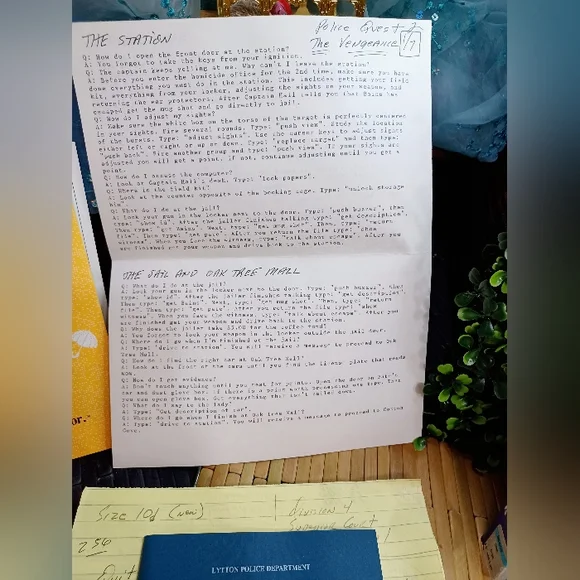 Police Quest 2
The Vengeance 1/7
THE STATION
Q: How do I open the front door at the station?
A: You forgot to take the keys from your ignition.
Q: The captain keeps yelling at me. Why can't I leave the station?
A: Before you enter the homicide office for the 2nd time, make sure you have
done everything you must do in the station. This includes getting your field
kit, everything from your locker, adjusting the sights on your weapon, and
returning the ear protectors. After Captain Hall tells you that Bains has
escaped get the mug shot and go directly to jail.
Q: How do I adjust my sights?
A: Make sure the white box on the torso of the target is perfectly centered
in your sights. Fire several rounds. Type: "push view". Study the location
of the bursts. Type: "adjust sight". Use the cursor keys to adjust sight
either left or right or up or down. Type: "replace target" and then type:
"push back". Fire another group and type: "push view". If your sights are
adjusted you will get a point. If not, continue adjusting until you get a
point.
Q: How do I access the computer?
A: Look at Captain Hall's desk. Type: "look papers".
Q: Where is the field kit?
A: Look at the counter opposite of the booking cage. Type: "unlock storage
bin".
Q: What do I do at the jail?
A: Lock your gun in the locker next to the door. Type: "push button", then
type: "show id". After the jailer finishes talking type: "get description".
Then type: "get Bains". Next, type: "get mug shot". Then, type: "return
file". Then type: "get guts". After you return the file type: "show
witness". When you face the witness, type: "talk about escape". After you
are finished get your weapon and drive back to the station.
THE JAIL AND OAK TREE MALL
Q: What do I do at the jail?
A: Lock your gun in the locker next to the door. Type: "push button", then
type: "show id". After the jailer finishes talking type: "get description".
Then type: "get Bains". Next, type: "get mug shot". Then, type: "return
file". Then type: "get guts". After you return the file type: "show
witness". When you face the witness, type: "talk about escape". After you
are finished get your weapon and drive back to the station.
Q: Why does the jailer take $5.00 for the coffee fund?
A: You forgot to lock your weapon in the locker outside the jail door.
Q: Where do I go when I'm finished at the jail?
A: Type: "drive to station". You will receive a message to proceed to Oak
Tree Mall.
Q: How do I find the right car at Oak Tree Mall?
A: Look at the front of the cars
Q: How do I get evidence?
A: Don't touch anything until you test for prints. Open the door on
car and dust glove box.
Q: What do I say to the lady?
A: Type: "Get description of car".
Q: Where do I go when I finish at Oak Tree Mall?
A: Type: "drive to station". You will receive a message to proceed to Cotton
Cove.
or."
SIZE 10½ (NEW)
256
Quit
DIVISION 4
Sunshine Court
LYTTON POLICE DEPARTMENT